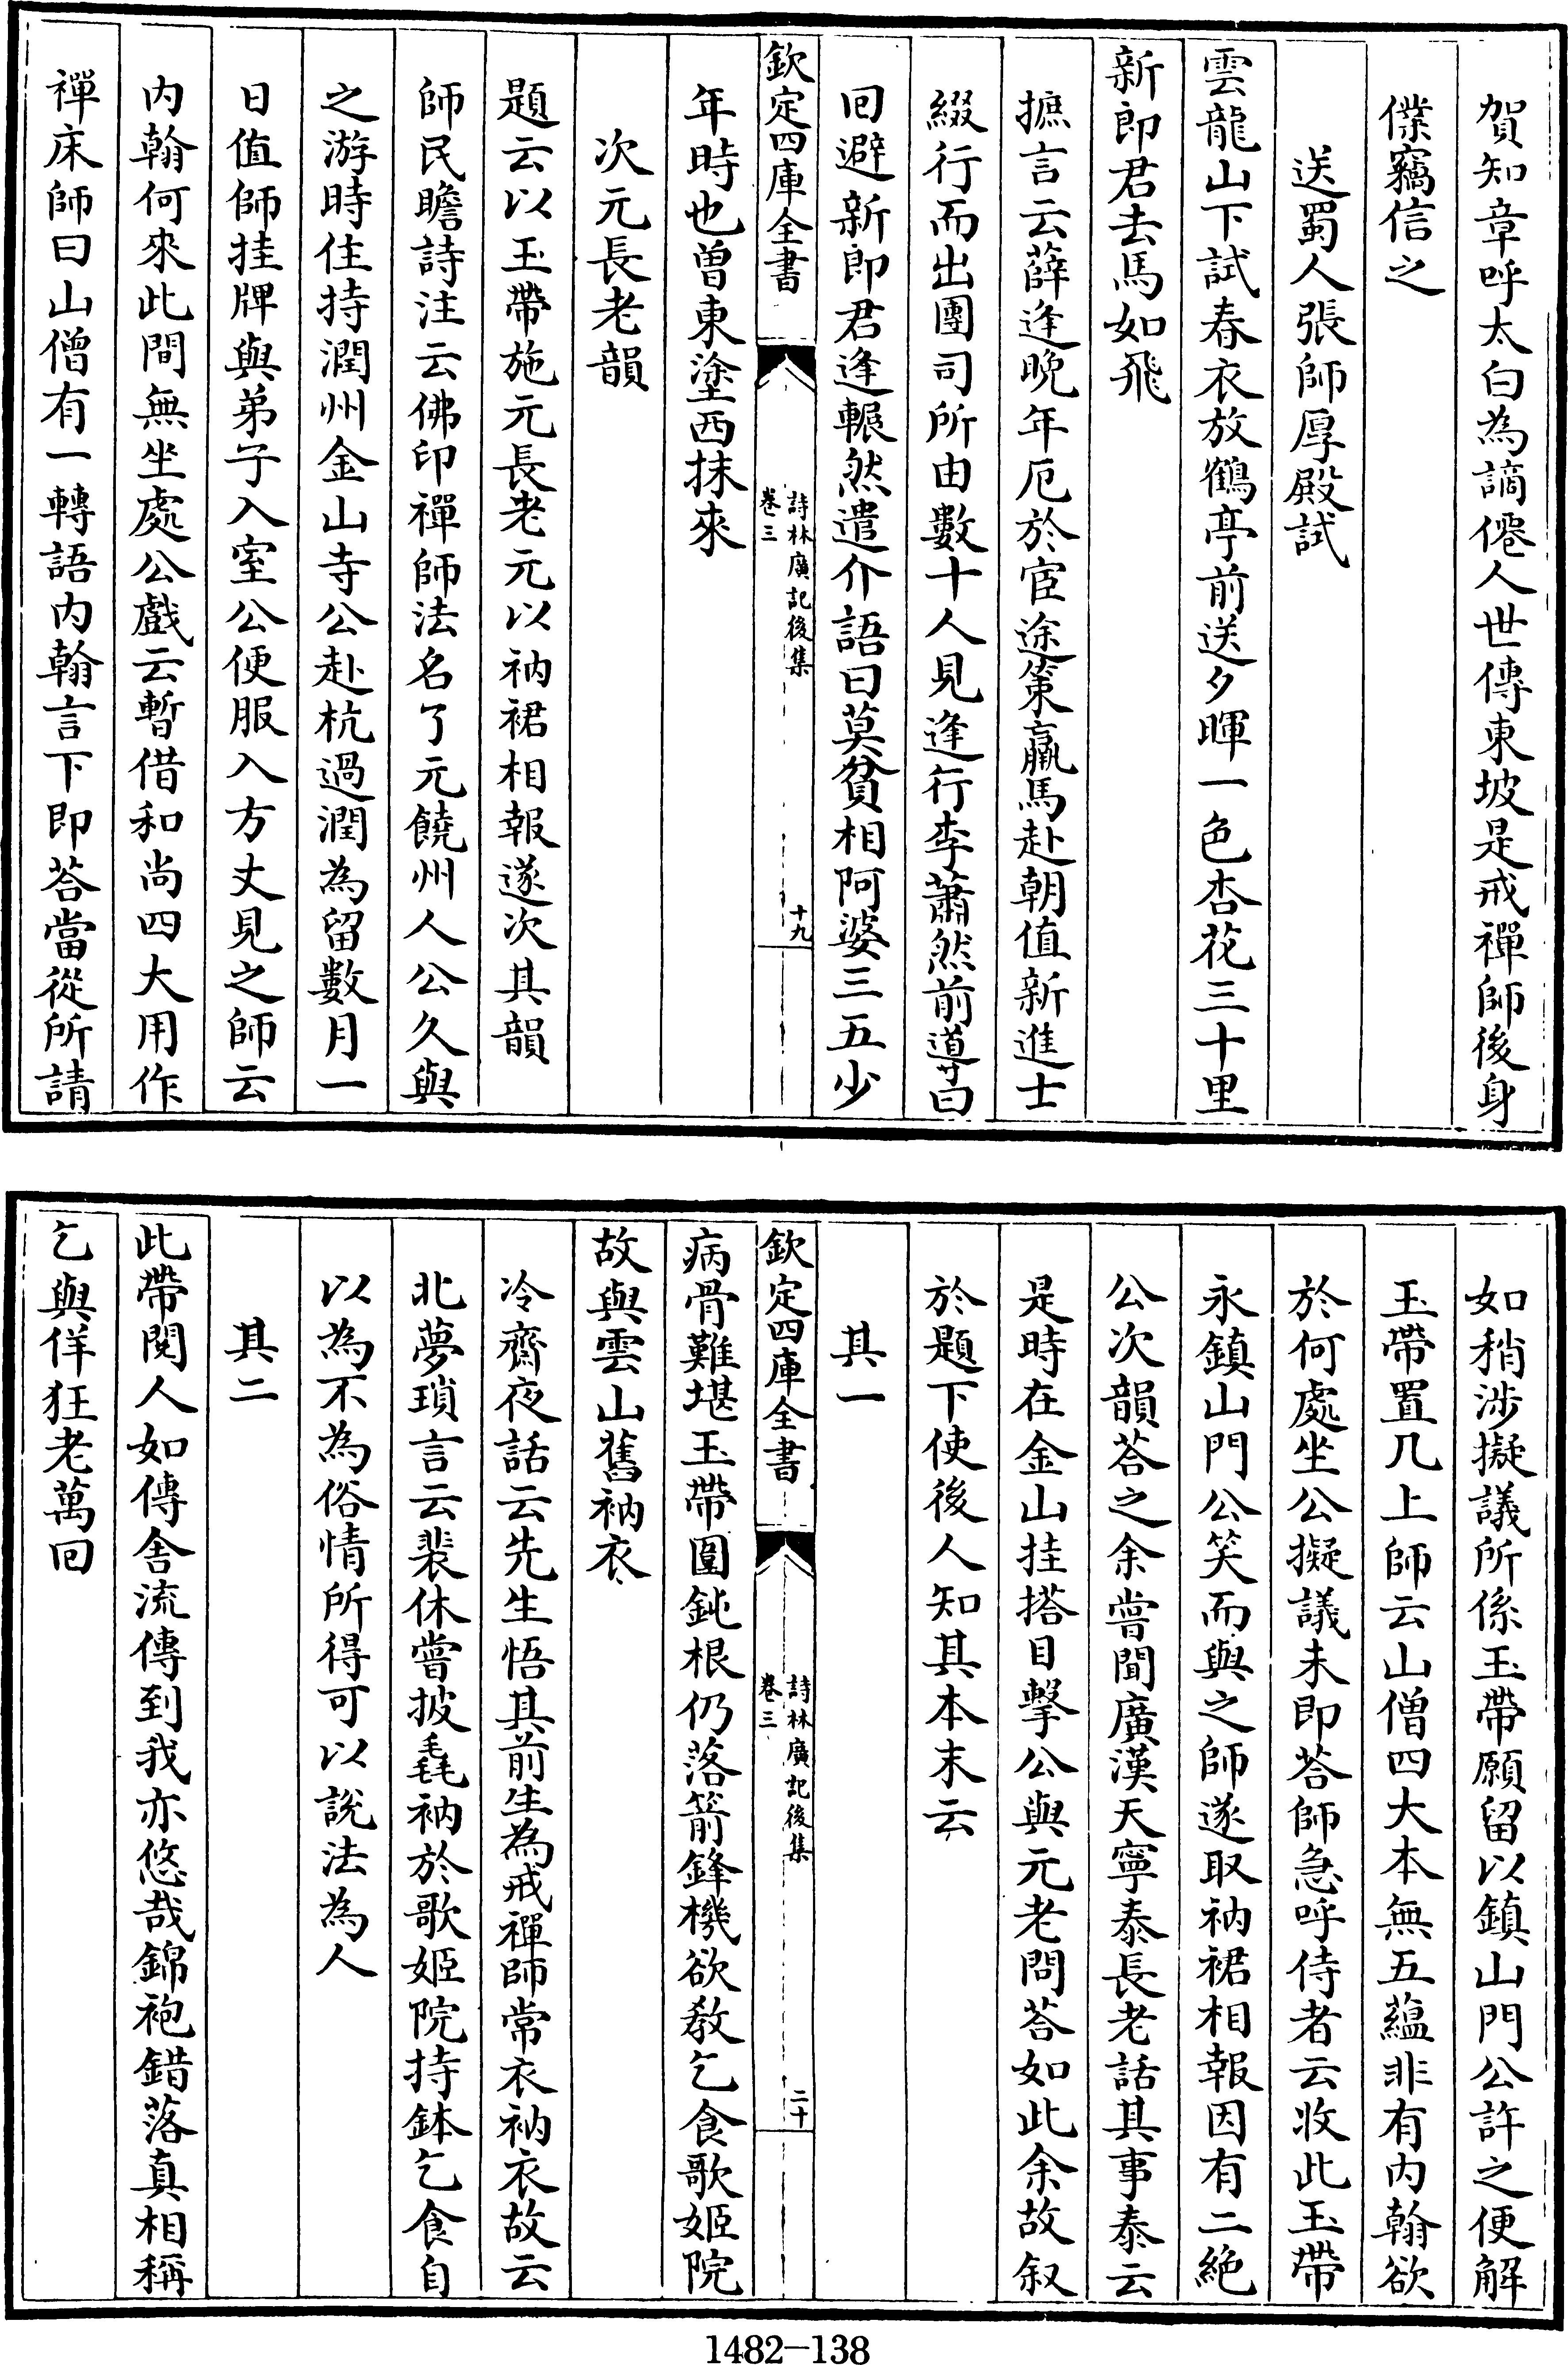 賀知章呼太白為謫僊人世傳東坡是戒禪師後身
僕竊信之
送蜀人張師厚殿試
雲龍山下試春衣放鶴亭前送夕暉一色杏花三十里
新郎君去馬如飛
摭言云薛逢晚年厄於宦途策羸馬赴朝值新進士
綴行而出團司所由數十人見逢行李蕭然前導曰
回避新郎君逢冁然遣介語曰莫貧相阿婆三五少
欽定四庫全書
詩林廣記後集
卷三
十九
年時也曾東塗西抹來
次元長老韻
題云以玉帶施元長老元以衲裙相報遂次其韻
師民瞻詩注云佛印禪師法名了元饒州人公久與
之游時住持潤州金山寺公赴杭過潤為留數月一
日值師挂牌與弟子入室公便服入方丈見之師云
內翰何來此間無坐處公戲云暫借和尚四大用作
禪床師曰山僧有一轉語內翰言下即荅當從所請
如稍涉擬議所係玉帶願留以鎮山門公許之便解
玉帶置几上師云山僧四大本無五藴非有內翰欲
於何處坐公擬議未即荅師急呼侍者云收此玉帶
永鎮山門公笑而與之師遂取衲裙相報因有二絶
公次韻荅之余嘗聞廣漢天寧泰長老話其事泰云
是時在金山挂搭目擊公與元老問荅如此余故叙
於題下使後人知其本末云
其一
欽定四庫全書
詩林廣記後集
卷三
二十
病骨難堪玉帶圍鈍根仍落箭鋒機欲教乞食歌姬院
故與雲山舊衲衣
冷齋夜話云先生悟其前生為戒禪師常衣衲衣故云
北夢瑣言云裴休嘗披毳衲於歌姬院持鉢乞食自
以為不為俗情所得可以說法為人
其二
此帶閱人如傳舍流傳到我亦悠哉錦袍錯落真相稱
乞與佯狂老萬回
1482-138